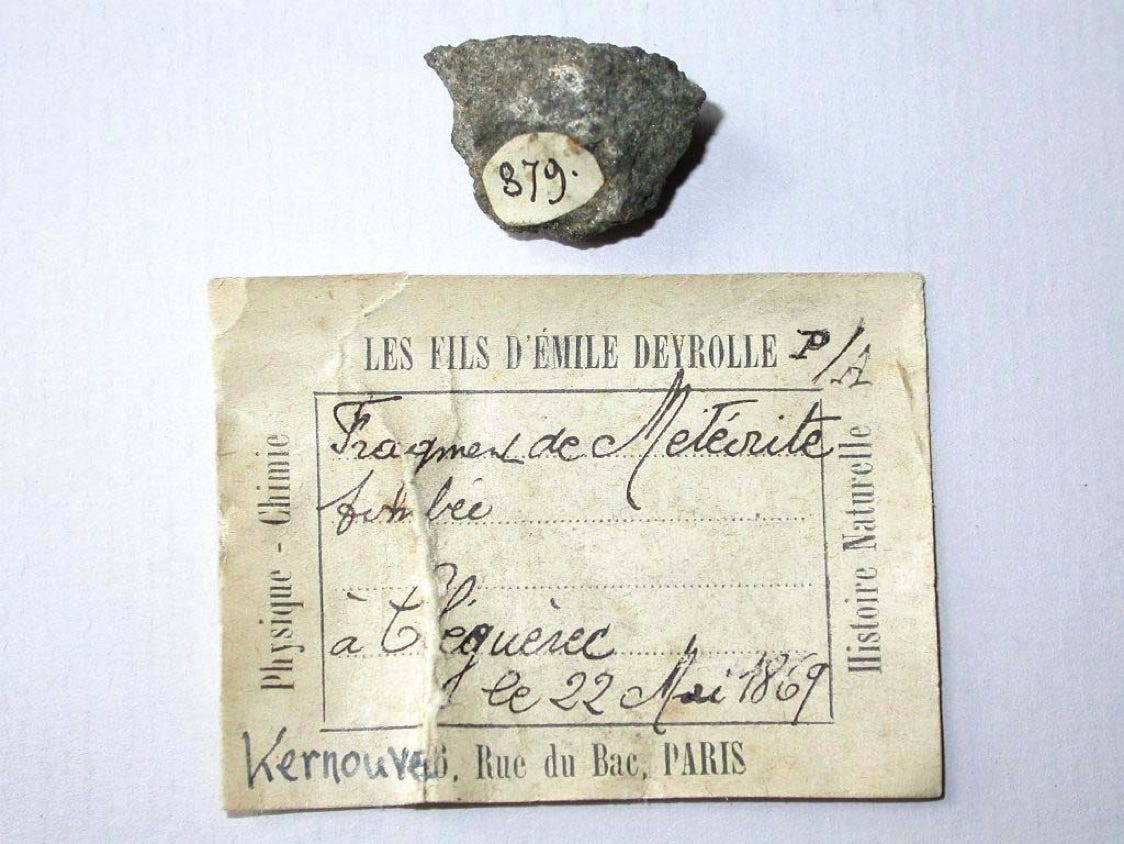 879.
LES FILS D'ÉMILE DEYROLLE
P/A
Physique - Chimie
Fragment de Météorite
tombée
à Cléguèrec
le 22 Mai 1869
Histoire Naturelle
Kernouve
46, Rue du Bac, PARIS